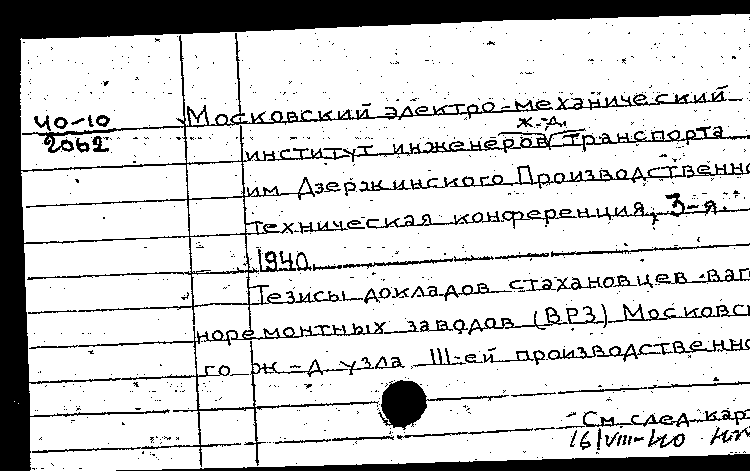 40-10
2062
Московский электро-механический
ж.-д.
институт инженеров транспорта
им Дзержинского Производственно
техническая конференция, 3-я.
1940.
Тезисы докладов стахановцев ваг
норемонтных заводов (ВРЗ) Московс
го ж-д узла III-ей производственно
См след кар
16/VIII-40